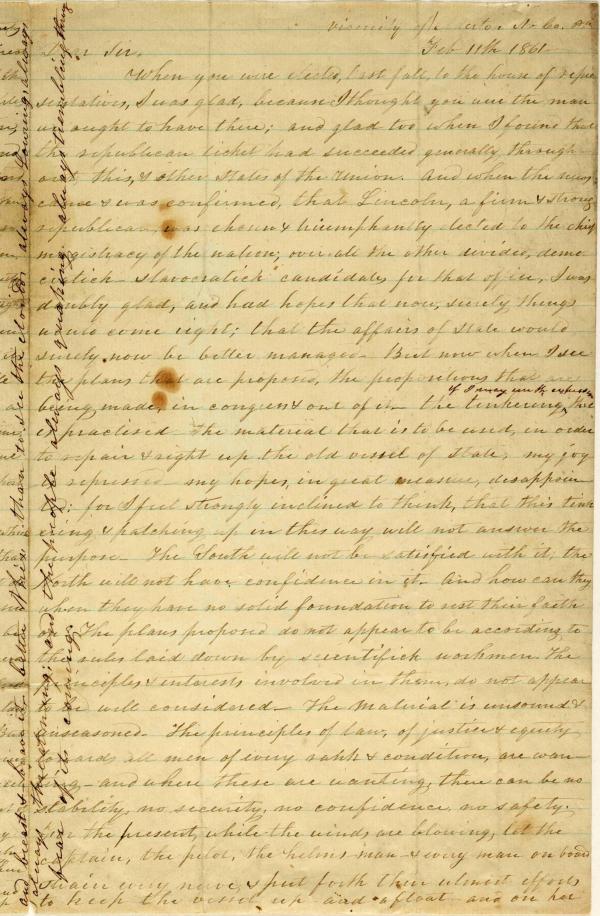 vicinity of
Dear Sir, Feb 11th 1861.
When you were elected, last fall, to the house of repre
sentatives, I was glad, because I thought you were the man
we ought to have there; and glad too when I found that
the republican ticket had succeeded generally through-
out, this, & other States of the Union. And when the news
came & was confirmed, that Lincoln, a firm & strong
republican, was chosen & triumphantly elected to the chief
magistracy of the nation; over all the other divided, demo
cratick - slavocratick candidates, for that office, I was
doubly glad, and had hopes that now, surely things
would come right; that the affairs of State would
surely now be better managed - But now when I see
the plans that are proposed, the propositions that are
being made, in congress & out of it - the tinkering, if I may use the expression
is practised - the material that is to be used, in order
to repair & right up the old vessel of State, my joy
is repressed - my hopes, in great measure, disappoin
ted; for I feel strongly inclined to think, that this tink
ering & patching up in this way will not answer the
purpose - The South will not be satisfied with it; the
North will not have confidence in it - And how can they
when they have no solid foundation to rest their faith
on. The plans proposed do not appear to be according to
the rules laid down by scientifick workmen. The
principles & interests involved in them, do not appear
to be well considered - The material is unsound &
unseasoned - The principles of law, of justice & equity
towards all men of every rank & condition, are wan-
ting - and where these are wanting, there can be no
stability, no security, no confidence, no safety.
For the present, while the winds are blowing, let the
captain, the pilot, the helms man & every man on board
strain every nerve & put forth their utmost efforts
to keep the vessel up and afloat and on her
and breast & brave it better it is than to see the clouds always lowering, always
always threatening and the people always quaking always trembling through
fear of its coming.